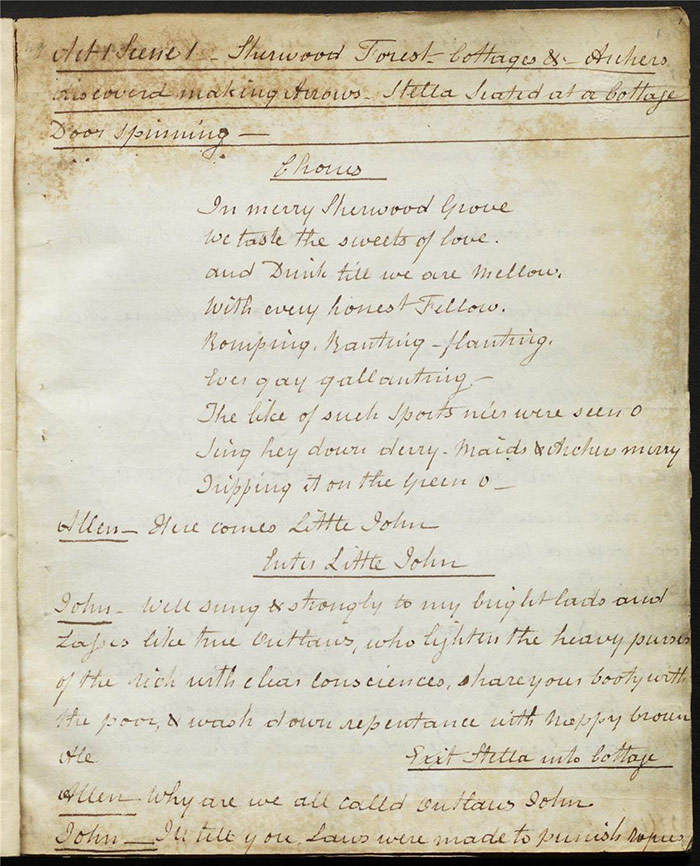 Act 1 Scene 1 - Sherwood Forest - Cottages & - Archers
discoverd making Arrows - Stella Seated at a Cottage
Door spinning -
Chorus
In merry Sherwood Grove
We taste the sweets of love.
and Drink till we are mellow.
With every honest Fellow.
Romping. Ranting - flanting.
Ever gay gallanting -
The like of such Sports n'er were seen o
Sing hey down derry - Maids & Archers merry
Tripping it on the Green o -
Allen - Here comes Little John
Enter Little John
John - Well sung & strongly to my bright lads and
Lasses like true Outlaws, who lighten the heavy purses
of the rich with clear consciences, share your booty with
the poor, & wash down repentance with nappy brown
Ale Exit Stella into Cottage
Allen - Why are we all called Outlaws John
John - I'll tell you Laws were made to punish Rogues